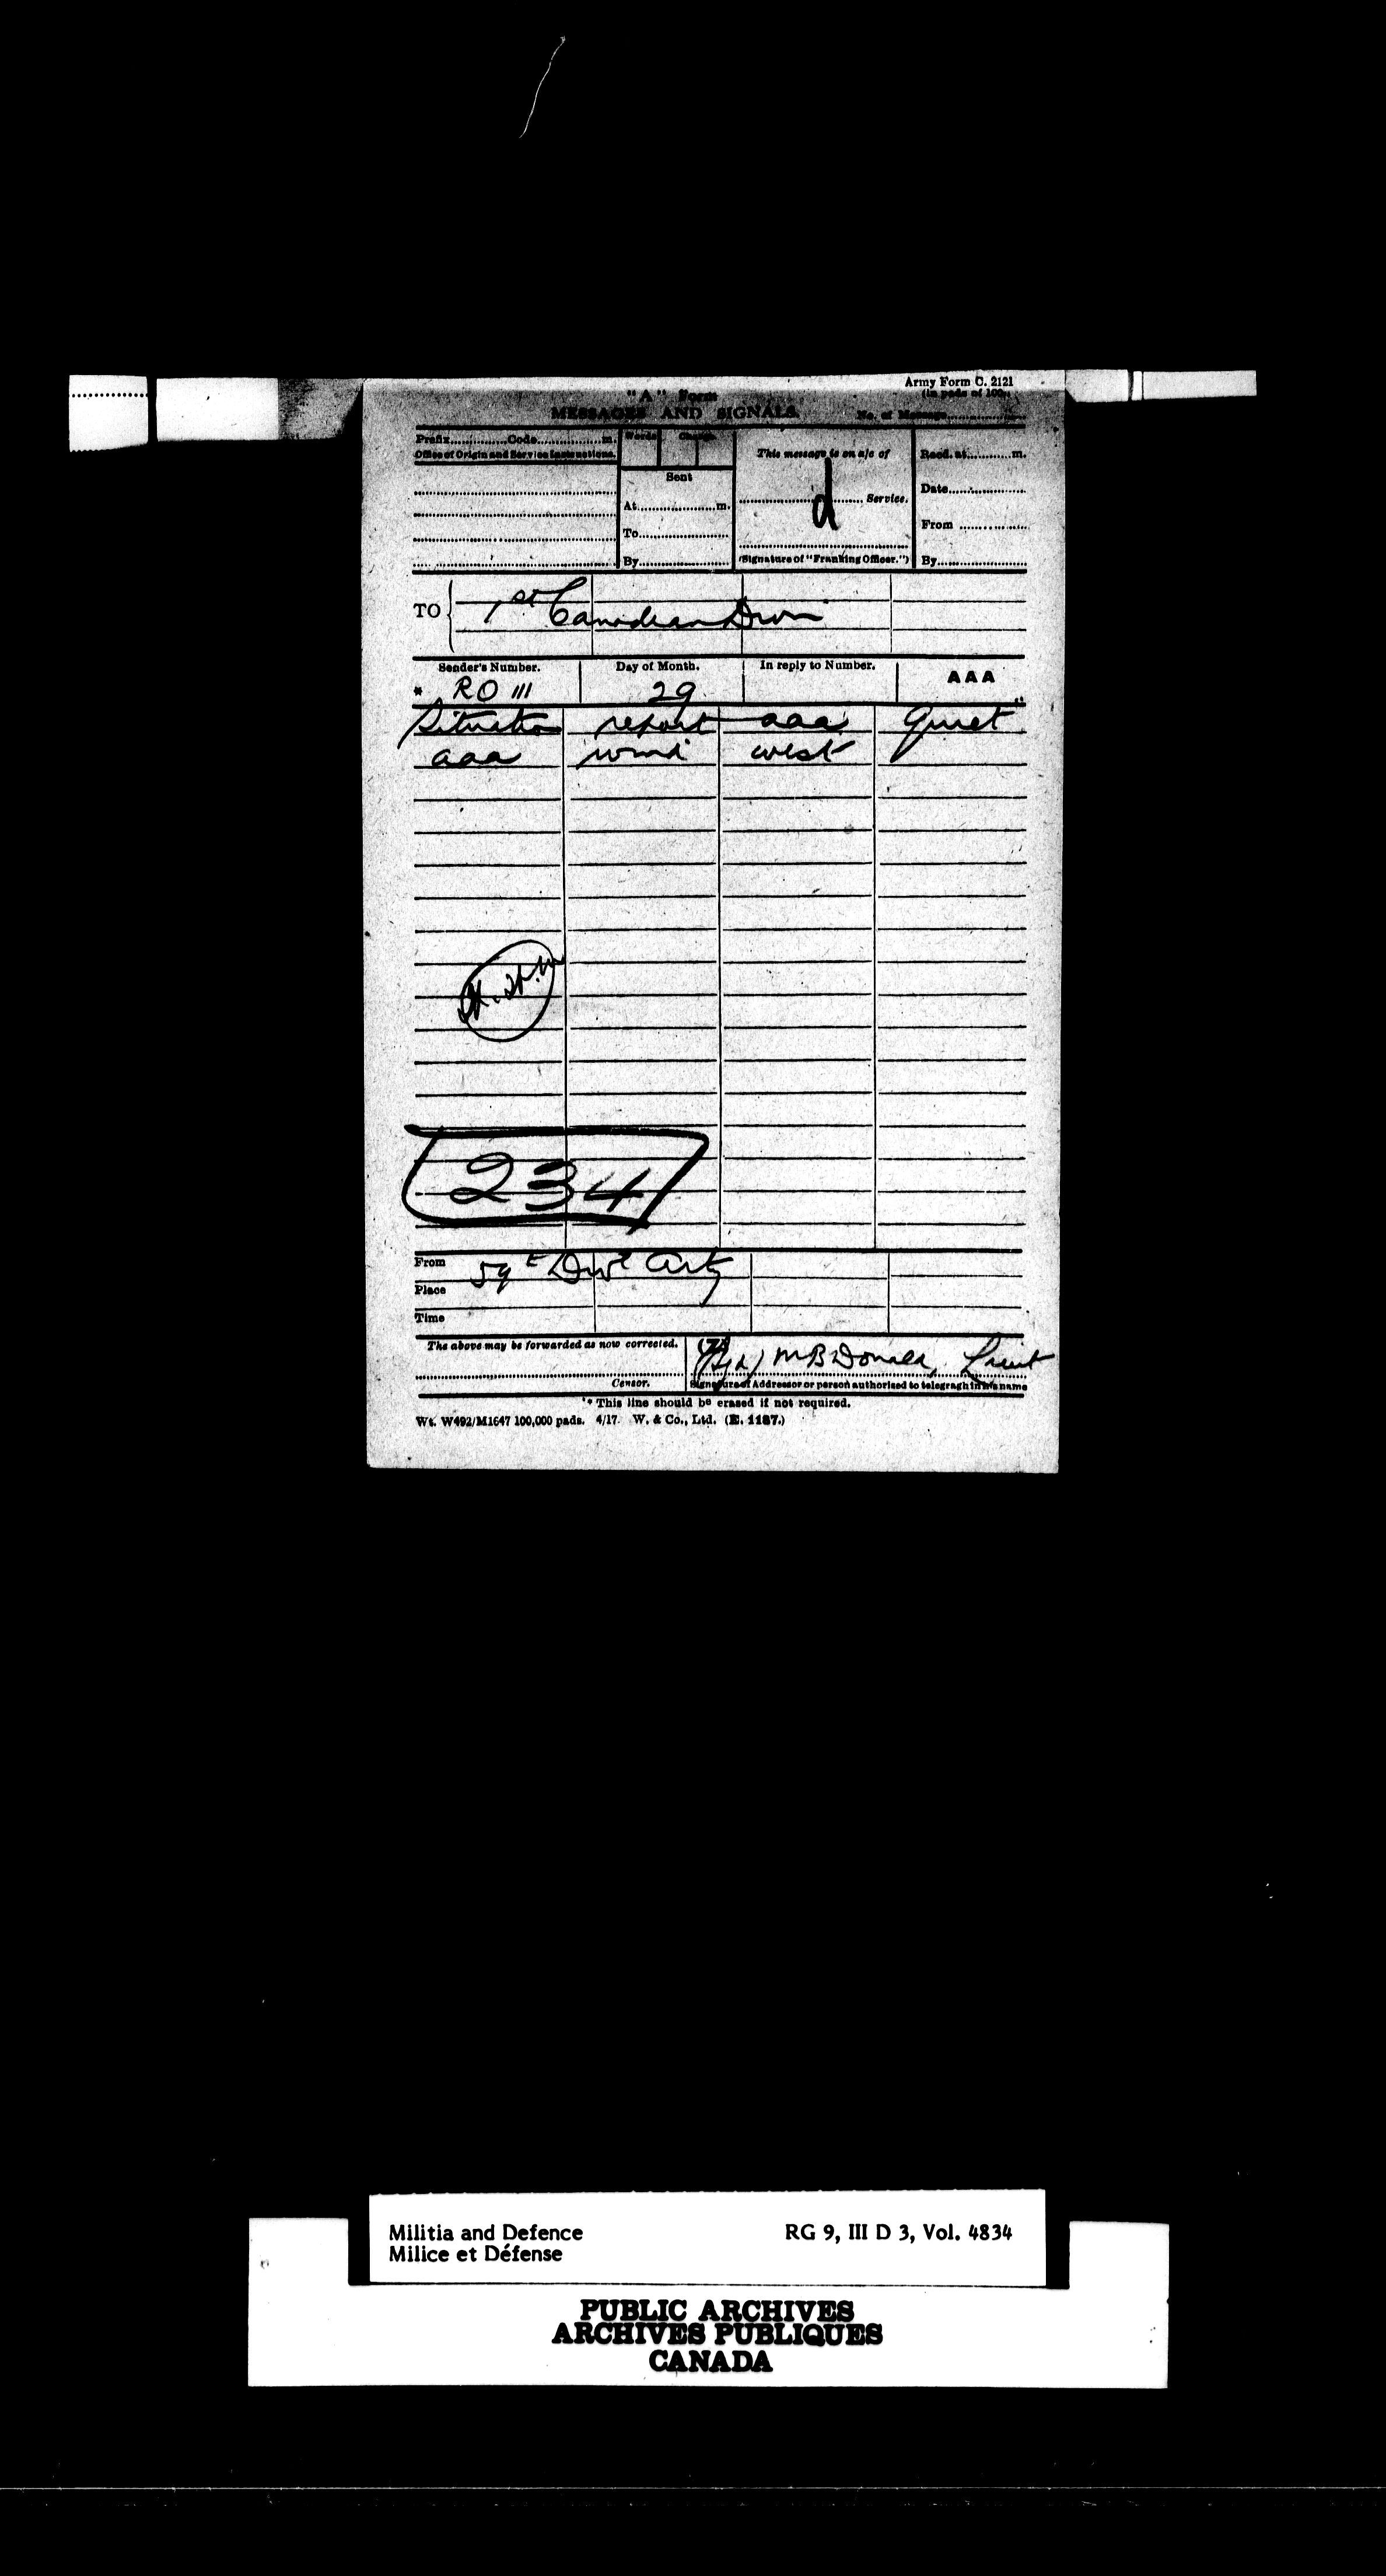 Army Form C. 2121
(In pads of 100.)
"A" Form
MESSAGES AND SIGNALS.
No. of Message..................
Prefix..............Code................m.
Words
Charge
This message is on a/c of
Recd. at...........m.
Office of Origin and Service Instructions.
Sent
d
Service.
Date..................
At....................m.
From ................
To.......................
By.......................
(Signature of "Franking Officer.")
By.......................
TO
1st Canadian Divn
Sender's Number.
Day of Month.
In reply to Number.
AAA
* RO 111
29
Situation report aaa Quiet
aaa wind west
234
From
59th Divl Arty
Place
Time
The above may be forwarded as now corrected.
(Z)
(Sgd) McDonald, Lieut
Censor.
Signature of Addressor or person authorised to telegraph in his name
* This line should be erased if not required.
Wt. W492/M1647 100,000 pads. 4/17. W. & Co., Ltd. (E. 1187.)
Militia and Defence
Milice et Défense
RG 9, III D 3, Vol. 4834
PUBLIC ARCHIVES
ARCHIVES PUBLIQUES
CANADA